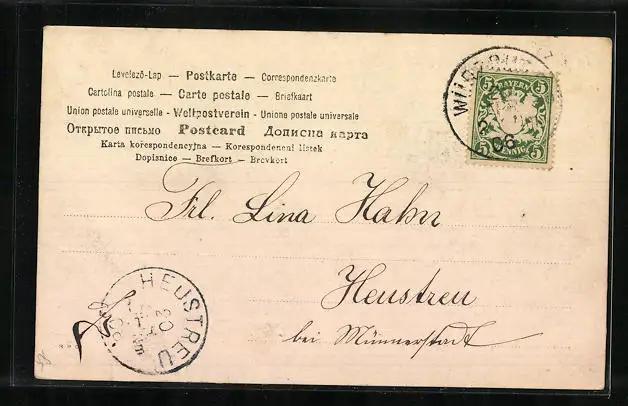 Levelező-Lap — Postkarte — Correspondenzkarte
Cartolina postale — Carte postale — Briefkaart
Union postale universelle - Weltpostverein - Unione postale universale
Открытое письмо Postcard Дописна карта
Karta korespondencyjna — Korespondencni listek
Dopisnice — Brefkort — Brevkort
BAYERN
5 5
5 PFENNIG 5
06
Frl. Lina Hahn
Heustreu
bei Münnerstadt
HEUSTREU
20